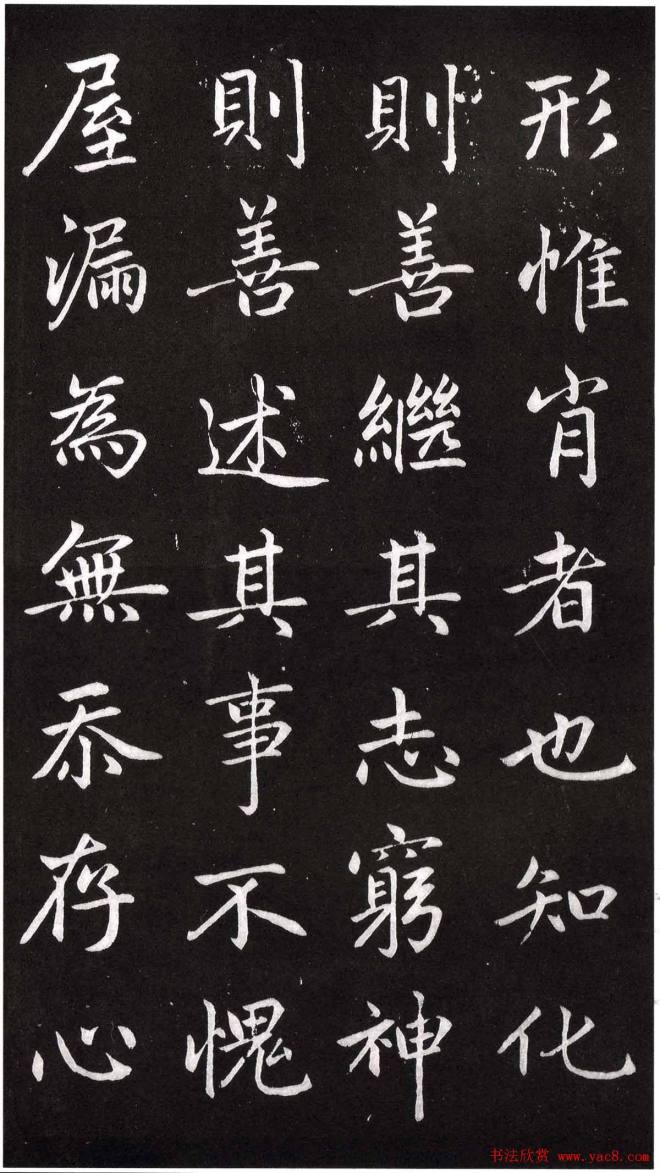 形惟肖者也知化
則善繼其志窮神
則善述其事不愧
屋漏為無忝存心
书法欣赏 www.yac8.com